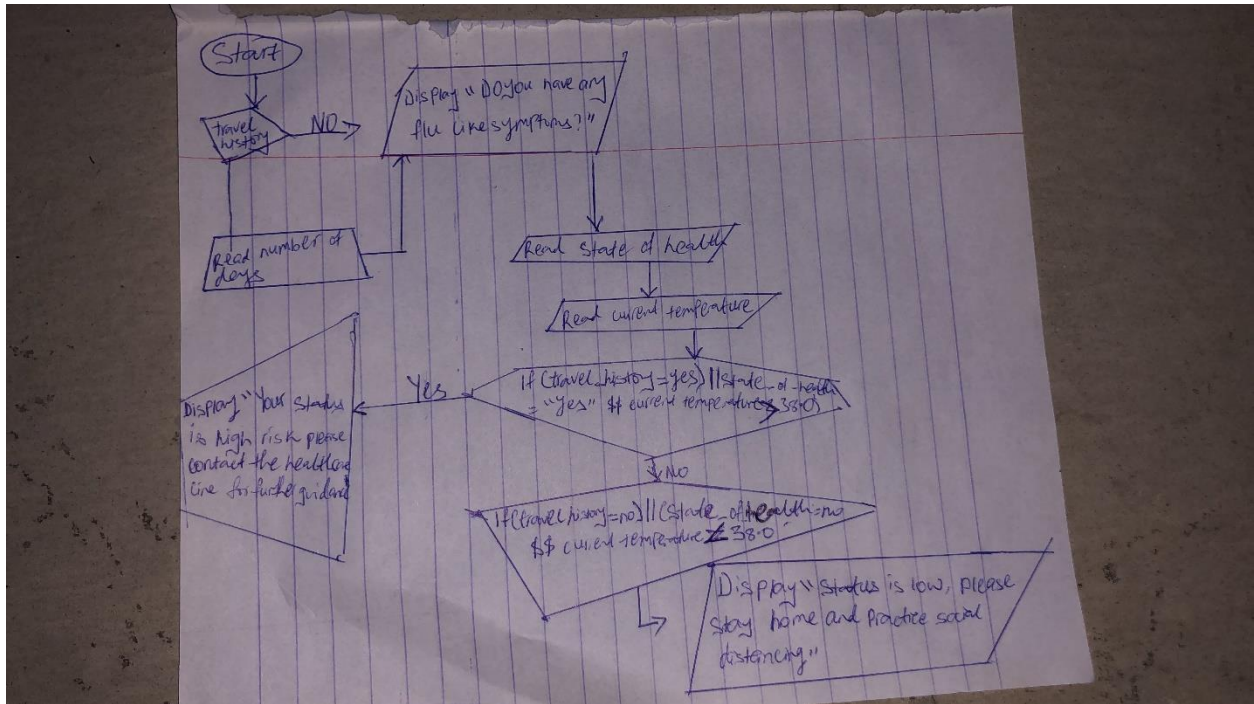 Start
travel
history
NO
Read number of
days
Display "DO you have any
flu like symptoms?"
Read state of health
Read current temperature
If (travel_history=yes) || state_of_health
= "yes" $$ current temperature > 38.0)
Yes
Display "Your status
is high risk please
contact the
line for further
NO
If (travel history=no) || (state_of_health=no
$$ current temperature 38.0
Display "Status is low, please
stay home and practice social
distancing"